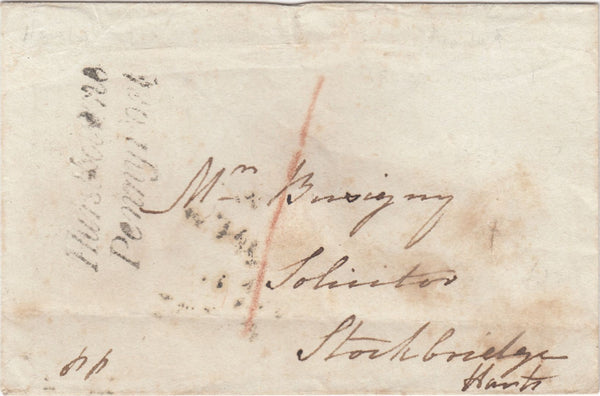 Hurstbourne
Pennypost
Mr Busigny
Solicitor
Stockbridge
Hants
pp